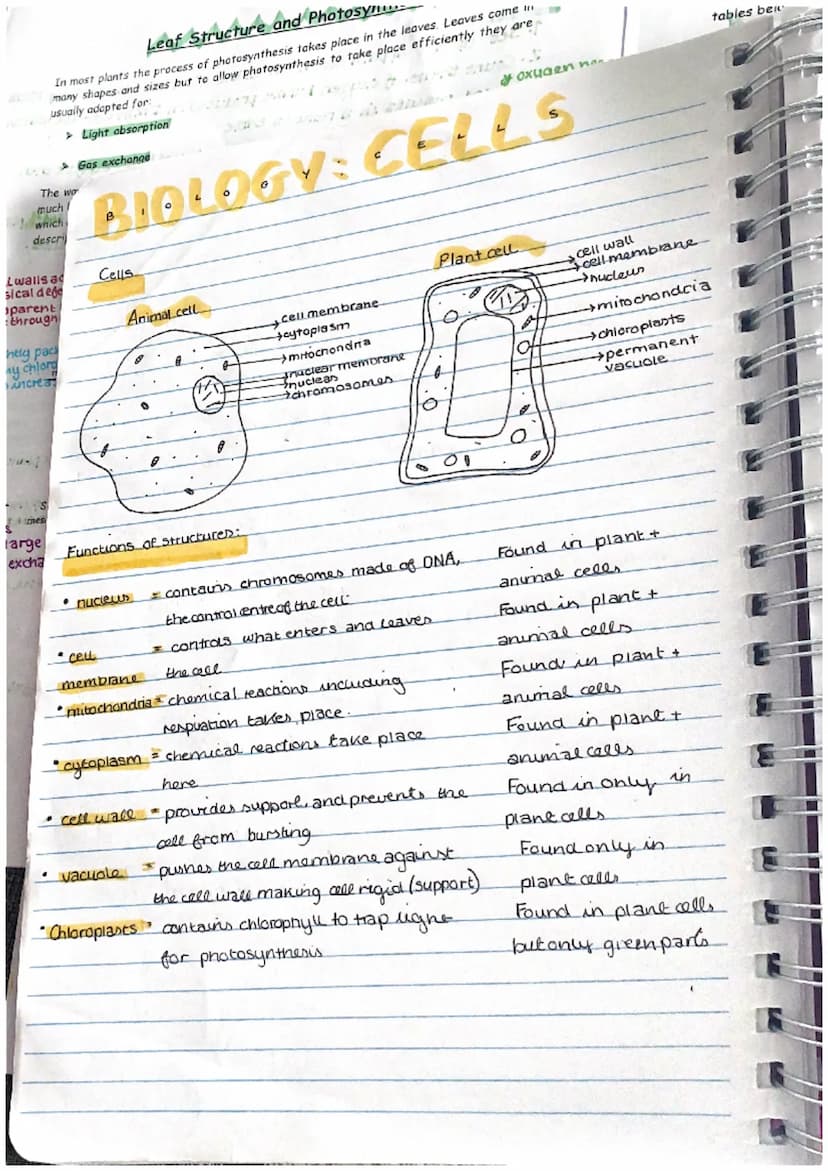 Leaf Structure and
In most plants the process of photosynthesis takes place in the leaves. Leaves come in
many shapes and sizes but to allow photosynthesis to take place efficiently they are
usually adapted for:
➤ Light absorption
➤ Gas exchange
The
much
which
tables
oxygen
BIOLOGY: CELLS
BIOLOGY CELLS
Cells
Animal cell
cell membrane
cytoplasm
mitochondria
nuclear membrane
nucleus
chromosomes
Plant cell
cell wall
cell membrane
nucleus
mitochondria
chloroplasts
permanent
vacuole
Functions of structures:
• nucleus = contains chromosomes made of DNA,
the control entre of the cell.
Found in plant +
animal cells
• cell = controls what enters and leaves
membrane the cell
Found in plant +
animal cells
• mitochondria = chemical reactions including
respiration takes place.
Found in plant +
animal cells
• cytoplasm = chemical reactions take place
here
Found in plant +
animal cells
• cell wall = provides support, and prevents the
cell from bursting
Found in only in
plant cells
• vacuole = pushes the cell membrane against
the cell wall making cell rigid (support)
Found only in
plant cells
• Chloroplasts = contains chlorophyll to trap light
for photosynthesis
Found in plant cells
but only green parts